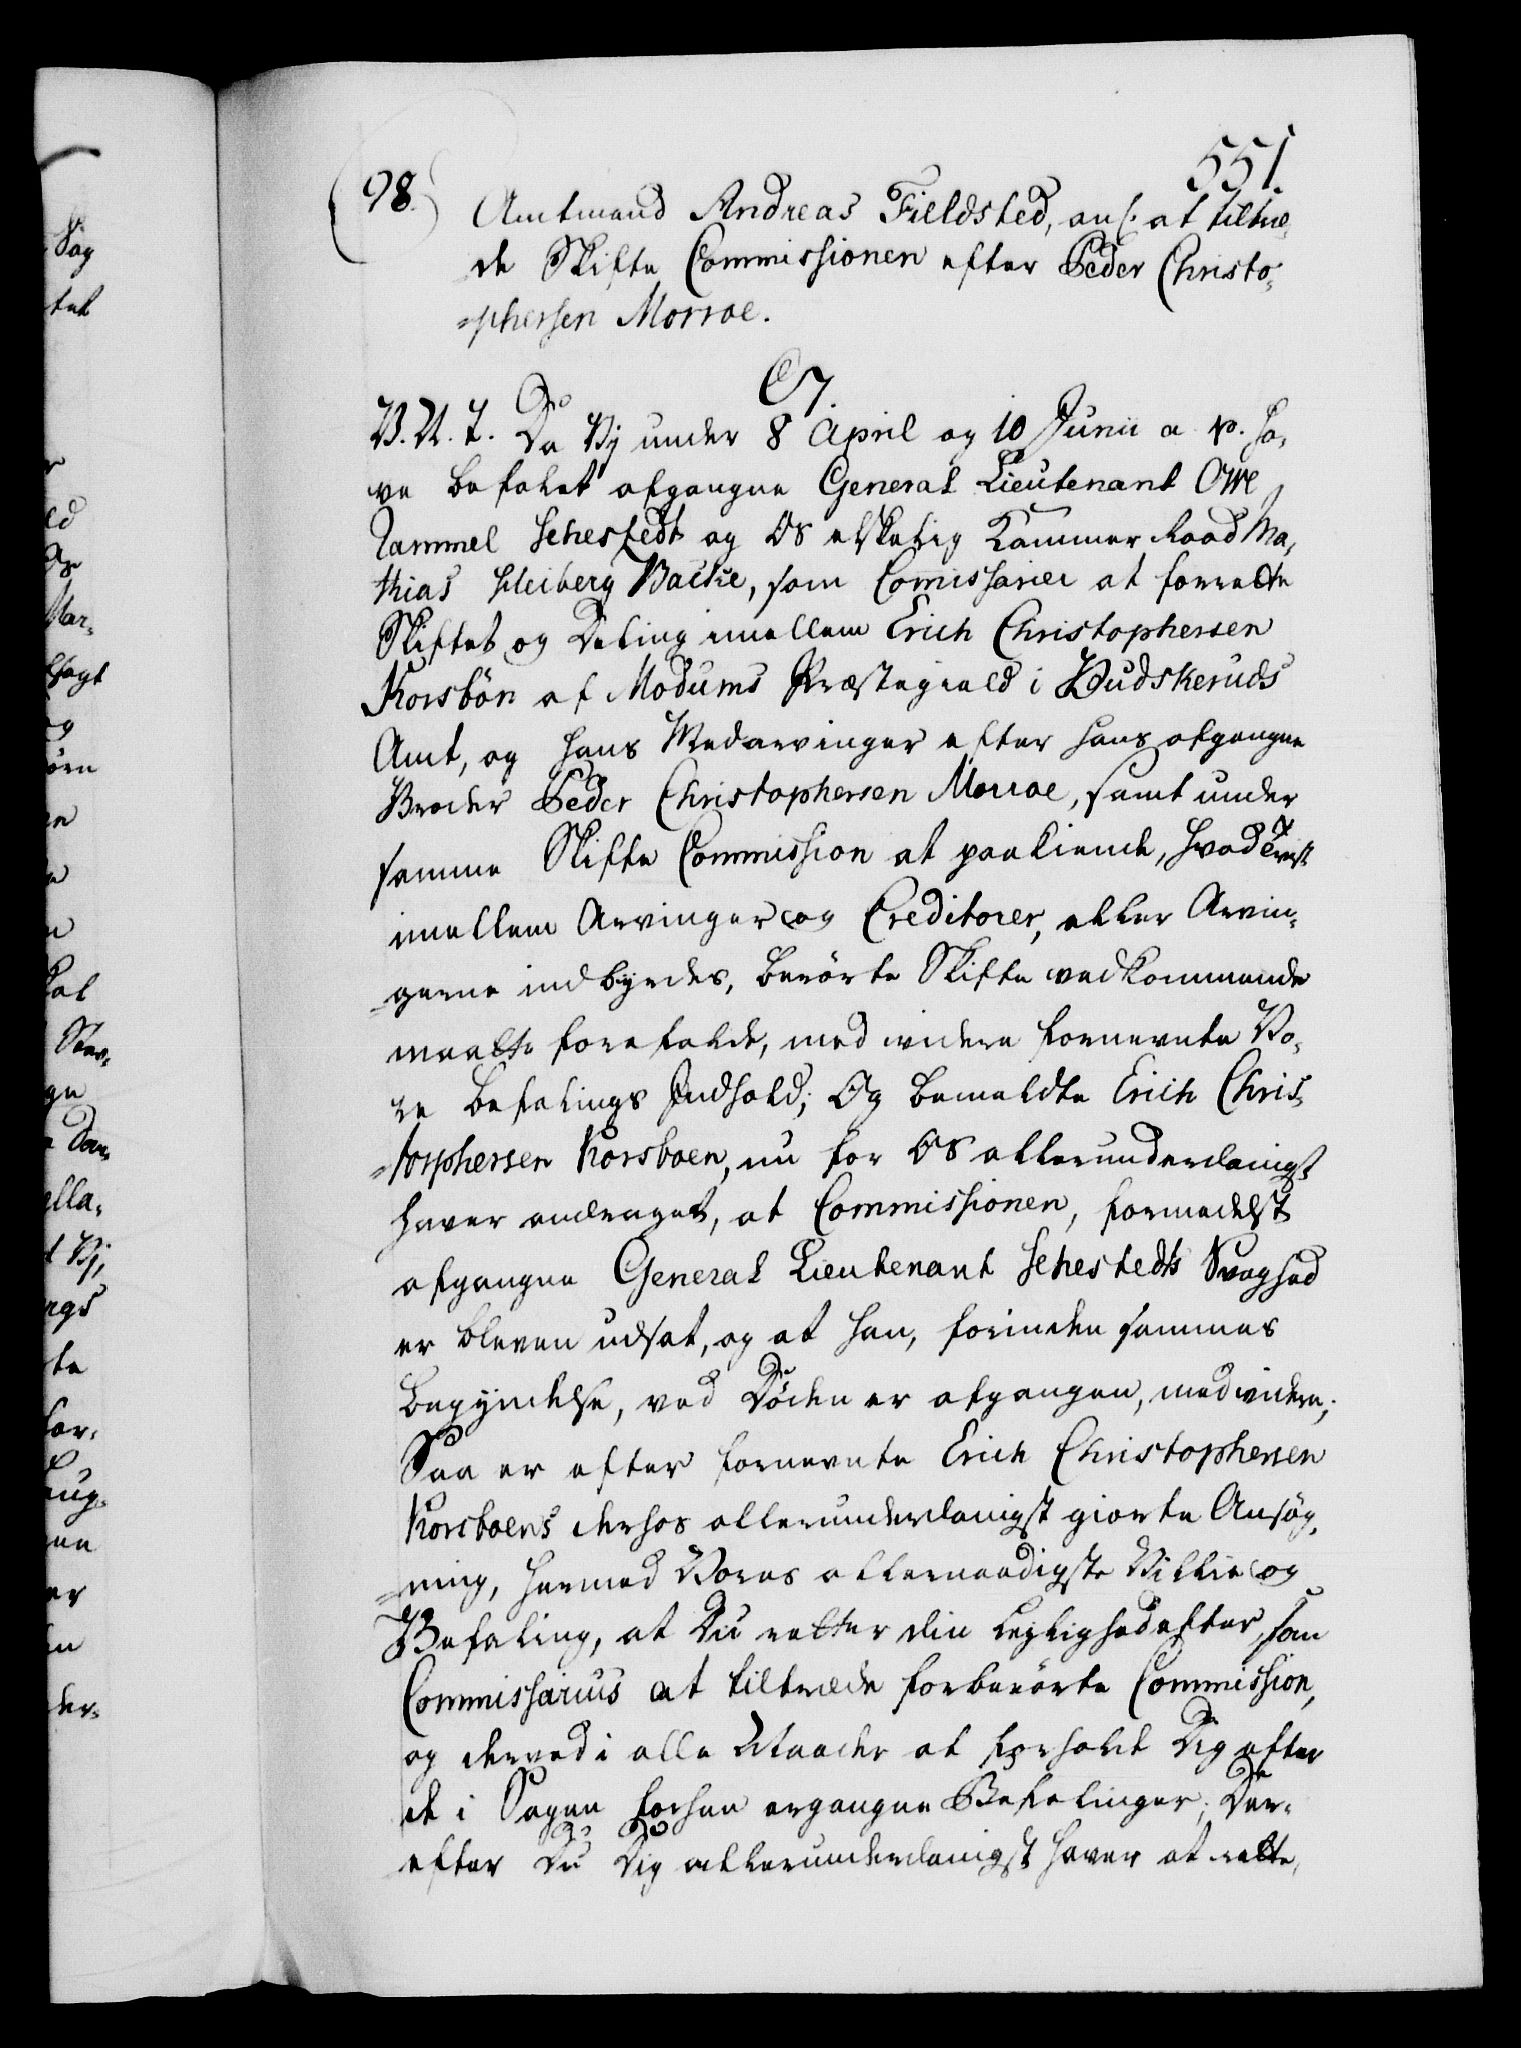 551.
98.) Amtmand Andreas Fieldsted, anl: at tiltræ-
de Skifte Commissionen efter Peder Christo-
=phersen Morroe.
C7.
V. A. T. Da Vj under 8 April og 10 Junii a. p. ha-
ve befalet afgangne General Lieutenant Owe
Rammel Sehestedt og OS elskelig Kammer Raad Ma-
thias Schleiberg Backe, som Comissarier at forrette
Skiftet og Deeling imellem Erich Christophersen
Korsbön af Modums Præstegield i Budskeruds
Amt, og hans Medarvinger efter hans afgangne
Broder Peder Christophersen Morroe, samt under
samme Skifte Commission at paakiende, hvad Tvist
imellem Arvinger og Creditorer, eller Arvin-
=gerne indbyrdes, berörte Skifte vedkommende
maatte forefalde, med videre fornevnte Vo-
re befalings Indhold; Og bemeldte Erich Chris-
=tophersen Korsboen, nu for OS allerunderdanigst
haver andraget, at Commissionen, formedelst
afgangne General Lieutenant Sehestedts Svaghed
er bleven udsat, og at han, forinden sammes
begyndelse, ved Döden er afgangen, med videre;
Saa er efter fornevnte Erich Christophersen
Korsboens derhos allerunderdanigst giorte Ansög-
=ning, hermed Vores allernaadigste Villie og
Befaling, at Du retter din Lejlighed efter, som
Commissarius at tiltræde forberörte Commission,
og derved i alle Maader at forholde Dig efter
de i Sagen forhen ergangne Befalinger; Der-
efter Du Dig allerunderdanigst haver at rette,